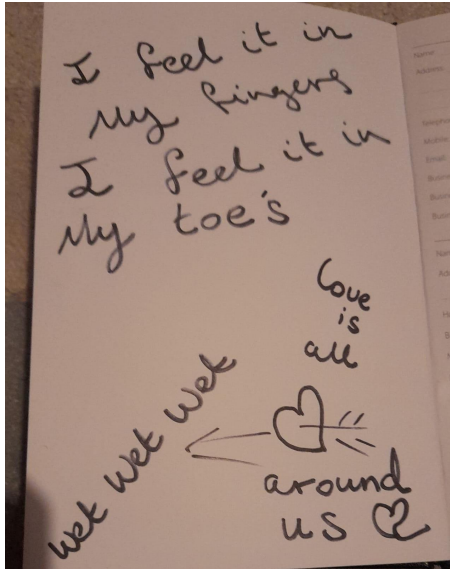 I feel it in
My fingers
I feel it in
My toe's
Love
is
all
around
us
Wet Wet Wet
Name
Address